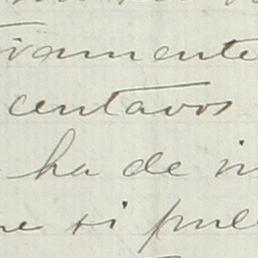 ivamente
centavos
ha de in
si pue